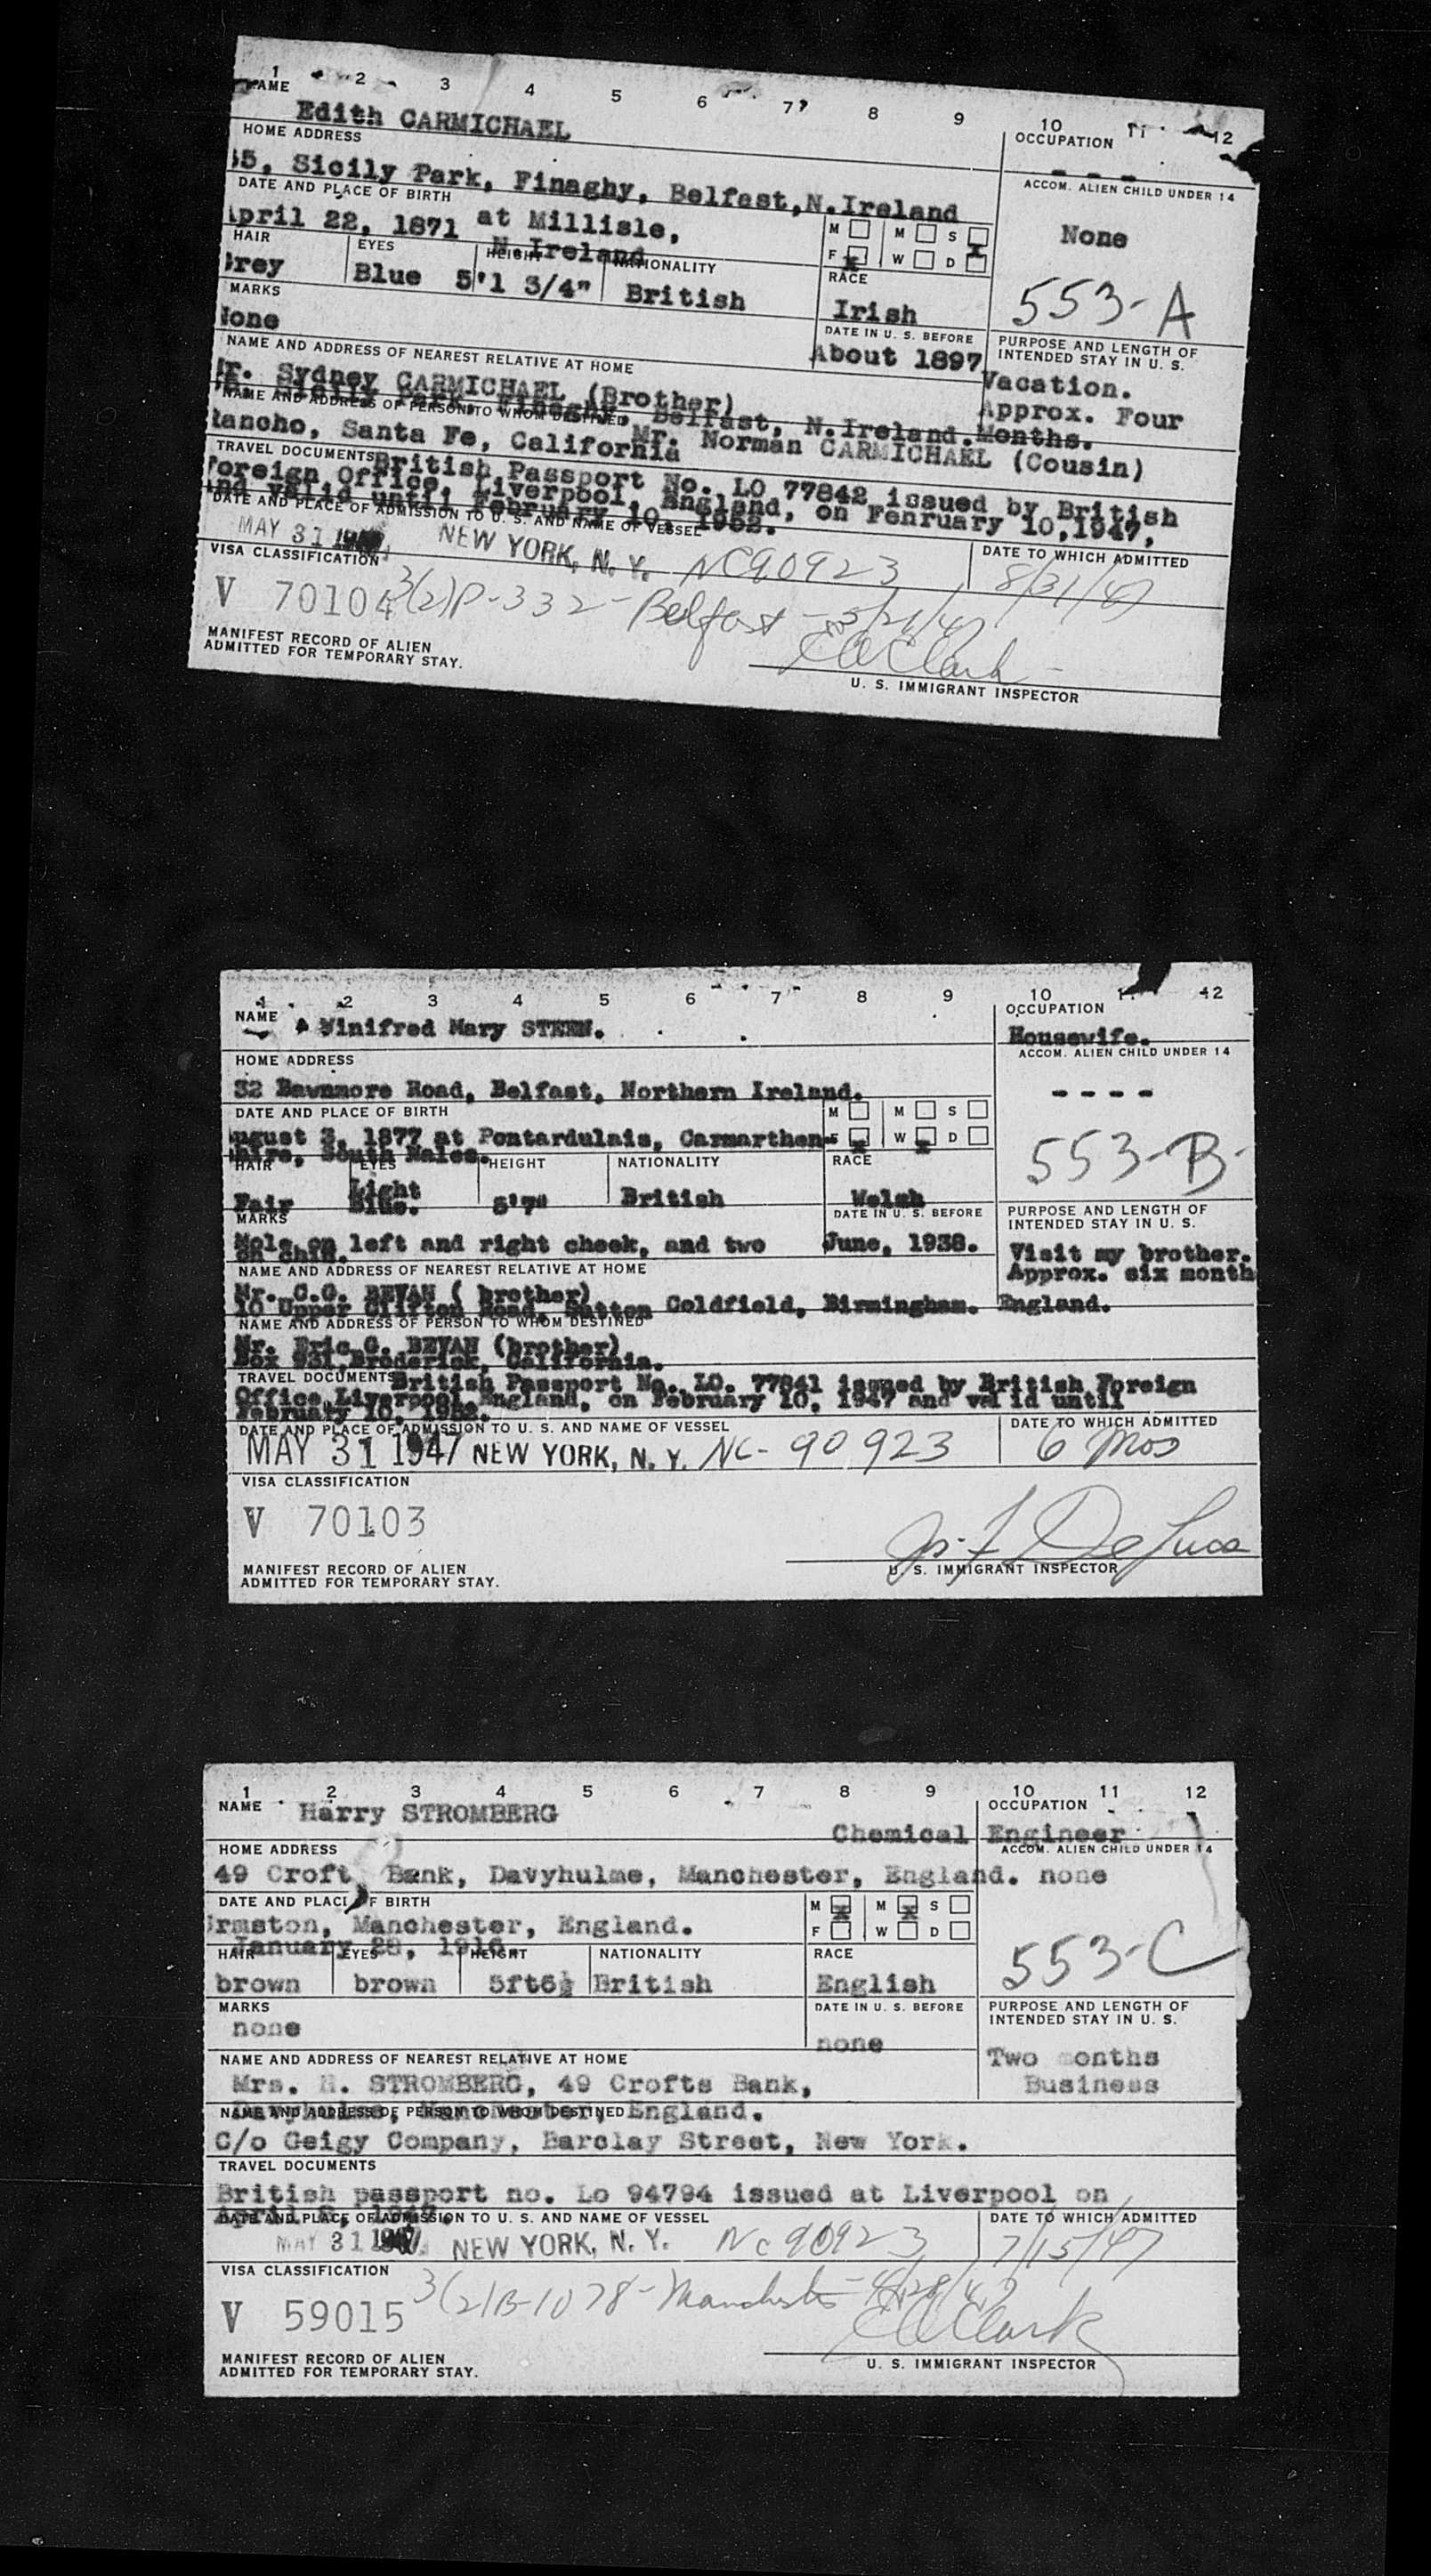 1 2 3 4 5 6 7 8 9 10 11 12
NAME
OCCUPATION
Edith CARMICHAEL
- - -
HOME ADDRESS
ACCOM. ALIEN CHILD UNDER 14
35, Sicily Park, Finaghy, Belfast,N.Ireland
None
DATE AND PLACE OF BIRTH
April 22, 1871 at Millisle,
N.Ireland
M M S
F x W D
HAIR EYES HEIGHT NATIONALITY RACE
Grey Blue 5'1 3/4" British Irish
553-A
MARKS
DATE IN U. S. BEFORE
PURPOSE AND LENGTH OF
INTENDED STAY IN U. S.
None
About 1897
Vacation.
Approx. Four
Months.
NAME AND ADDRESS OF NEAREST RELATIVE AT HOME
Mr. Sydney CARMICHAEL (Brother)
Sicily Park, Finaghy, Belfast, N.Ireland.
NAME AND ADDRESS OF PERSON TO WHOM DESTINED
Mr. Norman CARMICHAEL (Cousin)
Rancho, Santa Fe, California
TRAVEL DOCUMENTS
British Passport No. LO 77842 issued by British
Foreign Office, Liverpool, England, on Fenruary 10,1947,
and valid until February 10, 1952.
DATE AND PLACE OF ADMISSION TO U. S. AND NAME OF VESSEL
DATE TO WHICH ADMITTED
MAY 31 1947 NEW YORK, N. Y. NC90923 8/31/47
VISA CLASSIFICATION
V 70104 3(2)P-332-Belfast-5/21/47
E A Clark
MANIFEST RECORD OF ALIEN
ADMITTED FOR TEMPORARY STAY.
U. S. IMMIGRANT INSPECTOR
1 2 3 4 5 6 7 8 9 10 11 12
NAME
OCCUPATION
Winifred Mary STEEN.
Housewife.
HOME ADDRESS
ACCOM. ALIEN CHILD UNDER 14
32 Bawnmore Road, Belfast, Northern Ireland.
- - - -
DATE AND PLACE OF BIRTH
M M S
August 3, 1877 at Pontardulais, Carmarthen-
shire, South Wales.
F x W x D
553-B-
HAIR EYES HEIGHT NATIONALITY RACE
Fair Light
Blue. 5'7" British Welsh
MARKS
DATE IN U. S. BEFORE
PURPOSE AND LENGTH OF
INTENDED STAY IN U. S.
Mole on left and right cheek, and two
on chin.
June, 1938.
Visit my brother.
Approx. six month
NAME AND ADDRESS OF NEAREST RELATIVE AT HOME
Mr. C.G. BEVAN ( brother)
10 Upper Clifton Road, Sutton Coldfield, Birmingham. England.
NAME AND ADDRESS OF PERSON TO WHOM DESTINED
Mr. Eric G. BEVAN (brother)
Box 931,Broderick, California.
TRAVEL DOCUMENTS
British Passport No. LO. 77841 issued by British Foreign
Office,Liverpool,England, on February 10, 1947 and valid until
February 10, 1952.
DATE AND PLACE OF ADMISSION TO U. S. AND NAME OF VESSEL
DATE TO WHICH ADMITTED
MAY 31 1947 NEW YORK, N. Y. NC-90923 6 mos
VISA CLASSIFICATION
V 70103
De Luca
MANIFEST RECORD OF ALIEN
ADMITTED FOR TEMPORARY STAY.
U. S. IMMIGRANT INSPECTOR
1 2 3 4 5 6 7 8 9 10 11 12
NAME
OCCUPATION
Harry STROMBERG
Chemical Engineer
HOME ADDRESS
ACCOM. ALIEN CHILD UNDER 14
49 Croft Bank, Davyhulme, Manchester, England. none
DATE AND PLACE OF BIRTH
M x M x S
Urmston, Manchester, England.
F W D
January 28, 1916.
553-C
HAIR EYES HEIGHT NATIONALITY RACE
brown brown 5ft6½ British English
MARKS
DATE IN U. S. BEFORE
PURPOSE AND LENGTH OF
INTENDED STAY IN U. S.
none
none
Two months
Business
NAME AND ADDRESS OF NEAREST RELATIVE AT HOME
Mrs. H. STROMBERG, 49 Crofts Bank,
Davyhulme, Manchester, England.
NAME AND ADDRESS OF PERSON TO WHOM DESTINED
C/o Geigy Company, Barclay Street, New York.
TRAVEL DOCUMENTS
British passport no. Lo 94794 issued at Liverpool on
1947.
DATE AND PLACE OF ADMISSION TO U. S. AND NAME OF VESSEL
DATE TO WHICH ADMITTED
MAY 31 1947 NEW YORK, N. Y. Nc 90923 7/15/47
VISA CLASSIFICATION
V 59015 3(2)B-1078-Manchester-4/28/47
E A Clark
MANIFEST RECORD OF ALIEN
ADMITTED FOR TEMPORARY STAY.
U. S. IMMIGRANT INSPECTOR